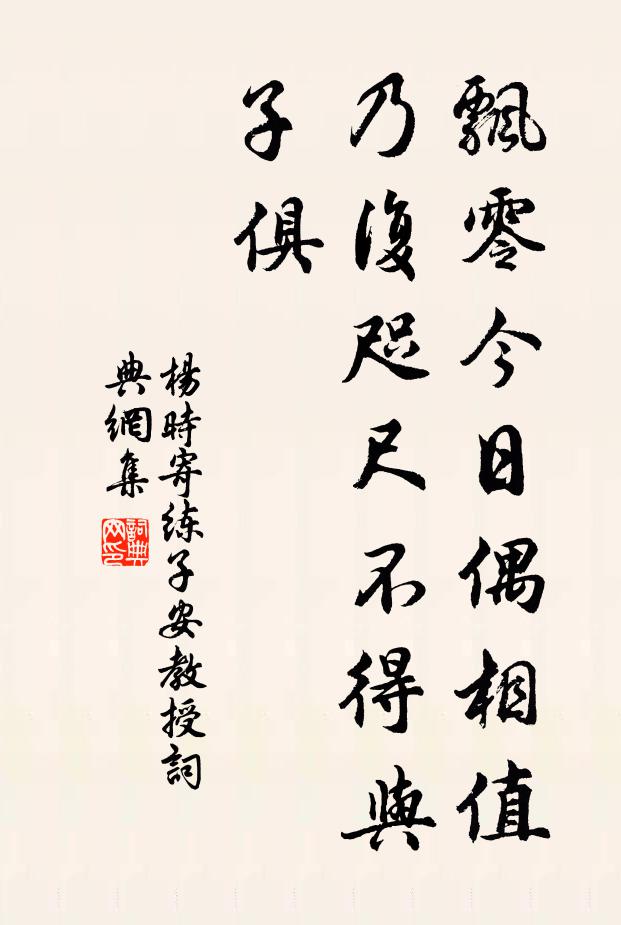 飄零今日偶相值
乃復咫尺不得與
子俱
楊時寄练子安教授詞
典網集
詞典
网印